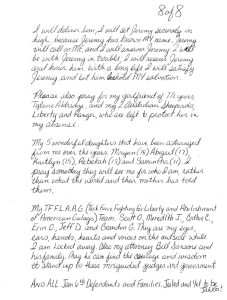 8 of 8
I will deliver him, I will set Jeremy securely on
high, because Jeremy has known MY name. Jeremy
will call on Me, and I will answer Jeremy. I will
be with Jeremy in trouble, I will rescue Jeremy
and honor him. With a long life I will satisfy
Jeremy, and let him behold MY salvation.
Please also pray for my girlfriend of 7½ years,
and my 2 Australian Shepherds,
Liberty and Ranger who are left to protect her in
my absence.
My 5 wonderful daughters that have been estranged
from me over the years. Morgan (18) Abigail (17)
Kaitlyn (15), Rebekah (13) and Samantha (11). I
pray someday they will see me for who I am, rather
than what the world and their mother has told
them.
My T.F.F.L.A.A.G (Task Force Fighting for Liberty and Abolishment
of American Gulags) Team. Scott O, Meredith J, Cathe C,
Erin O, Jeff D and Brandon G. They are my eyes,
ears, hands, hearts and voices on the outside while
I am locked away. Also my attorney Bill Sarsons and
his family. Pray he can find the courage and wisdom
to stand up to these misguided judges and government.
And ALL Jan 6th Defendants and Families. Jailed and Yet to be
Jailed!